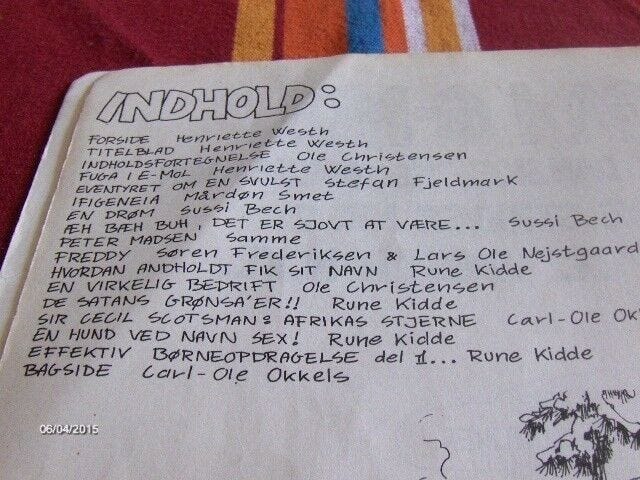 INDHOLD:
FORSIDE Henriette Westh
TITELBLAD Henriette Westh
INDHOLDSFORTEGNELSE Ole Christensen
FUGA I E-MOL Henriette Westh
EVENTYRET OM EN SVULST Stefan Fjeldmark
IFIGENEIA Mårdøn Smet
EN DRØM Sussi Bech
ÆH BÆH BUH, DET ER SJOVT AT VÆRE... Sussi Bech
PETER MADSEN Samme
FREDDY Søren Frederiksen & Lars Ole Nejstgaard
HVORDAN ANDHOLDT FIK SIT NAVN Rune Kidde
EN VIRKELIG BEDRIFT Ole Christensen
DE SATANS GRØNSA'ER!! Rune Kidde
SIR CECIL SCOTSMAN: AFRIKAS STJERNE Carl-Ole Ok
EN HUND VED NAVN SEX! Rune Kidde
EFFEKTIV BØRNEOPDRAGELSE del 1... Rune Kidde
BAGSIDE Carl-Ole Okkels
06/04/2015